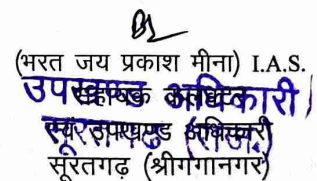 (भरत जय प्रकाश मीना) I.A.S.
उपखण्ड अधिकारी
सहायक कलक्टर
एवं उपखण्ड अधिकारी
सूरतगढ़ (राज.)
सूरतगढ़ (श्रीगंगानगर)